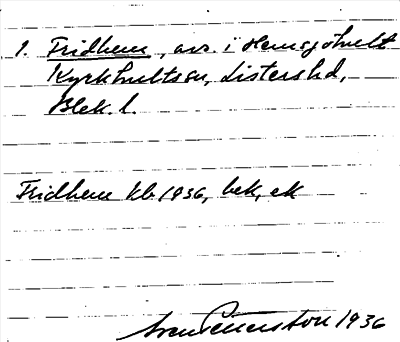 1. Fridhem, avs. i Hemsjöhult
Kyrkhults sn, Listers hd,
Blek. l.
Fridhem kb 1936, bek, ek
Sven Petersson 1936